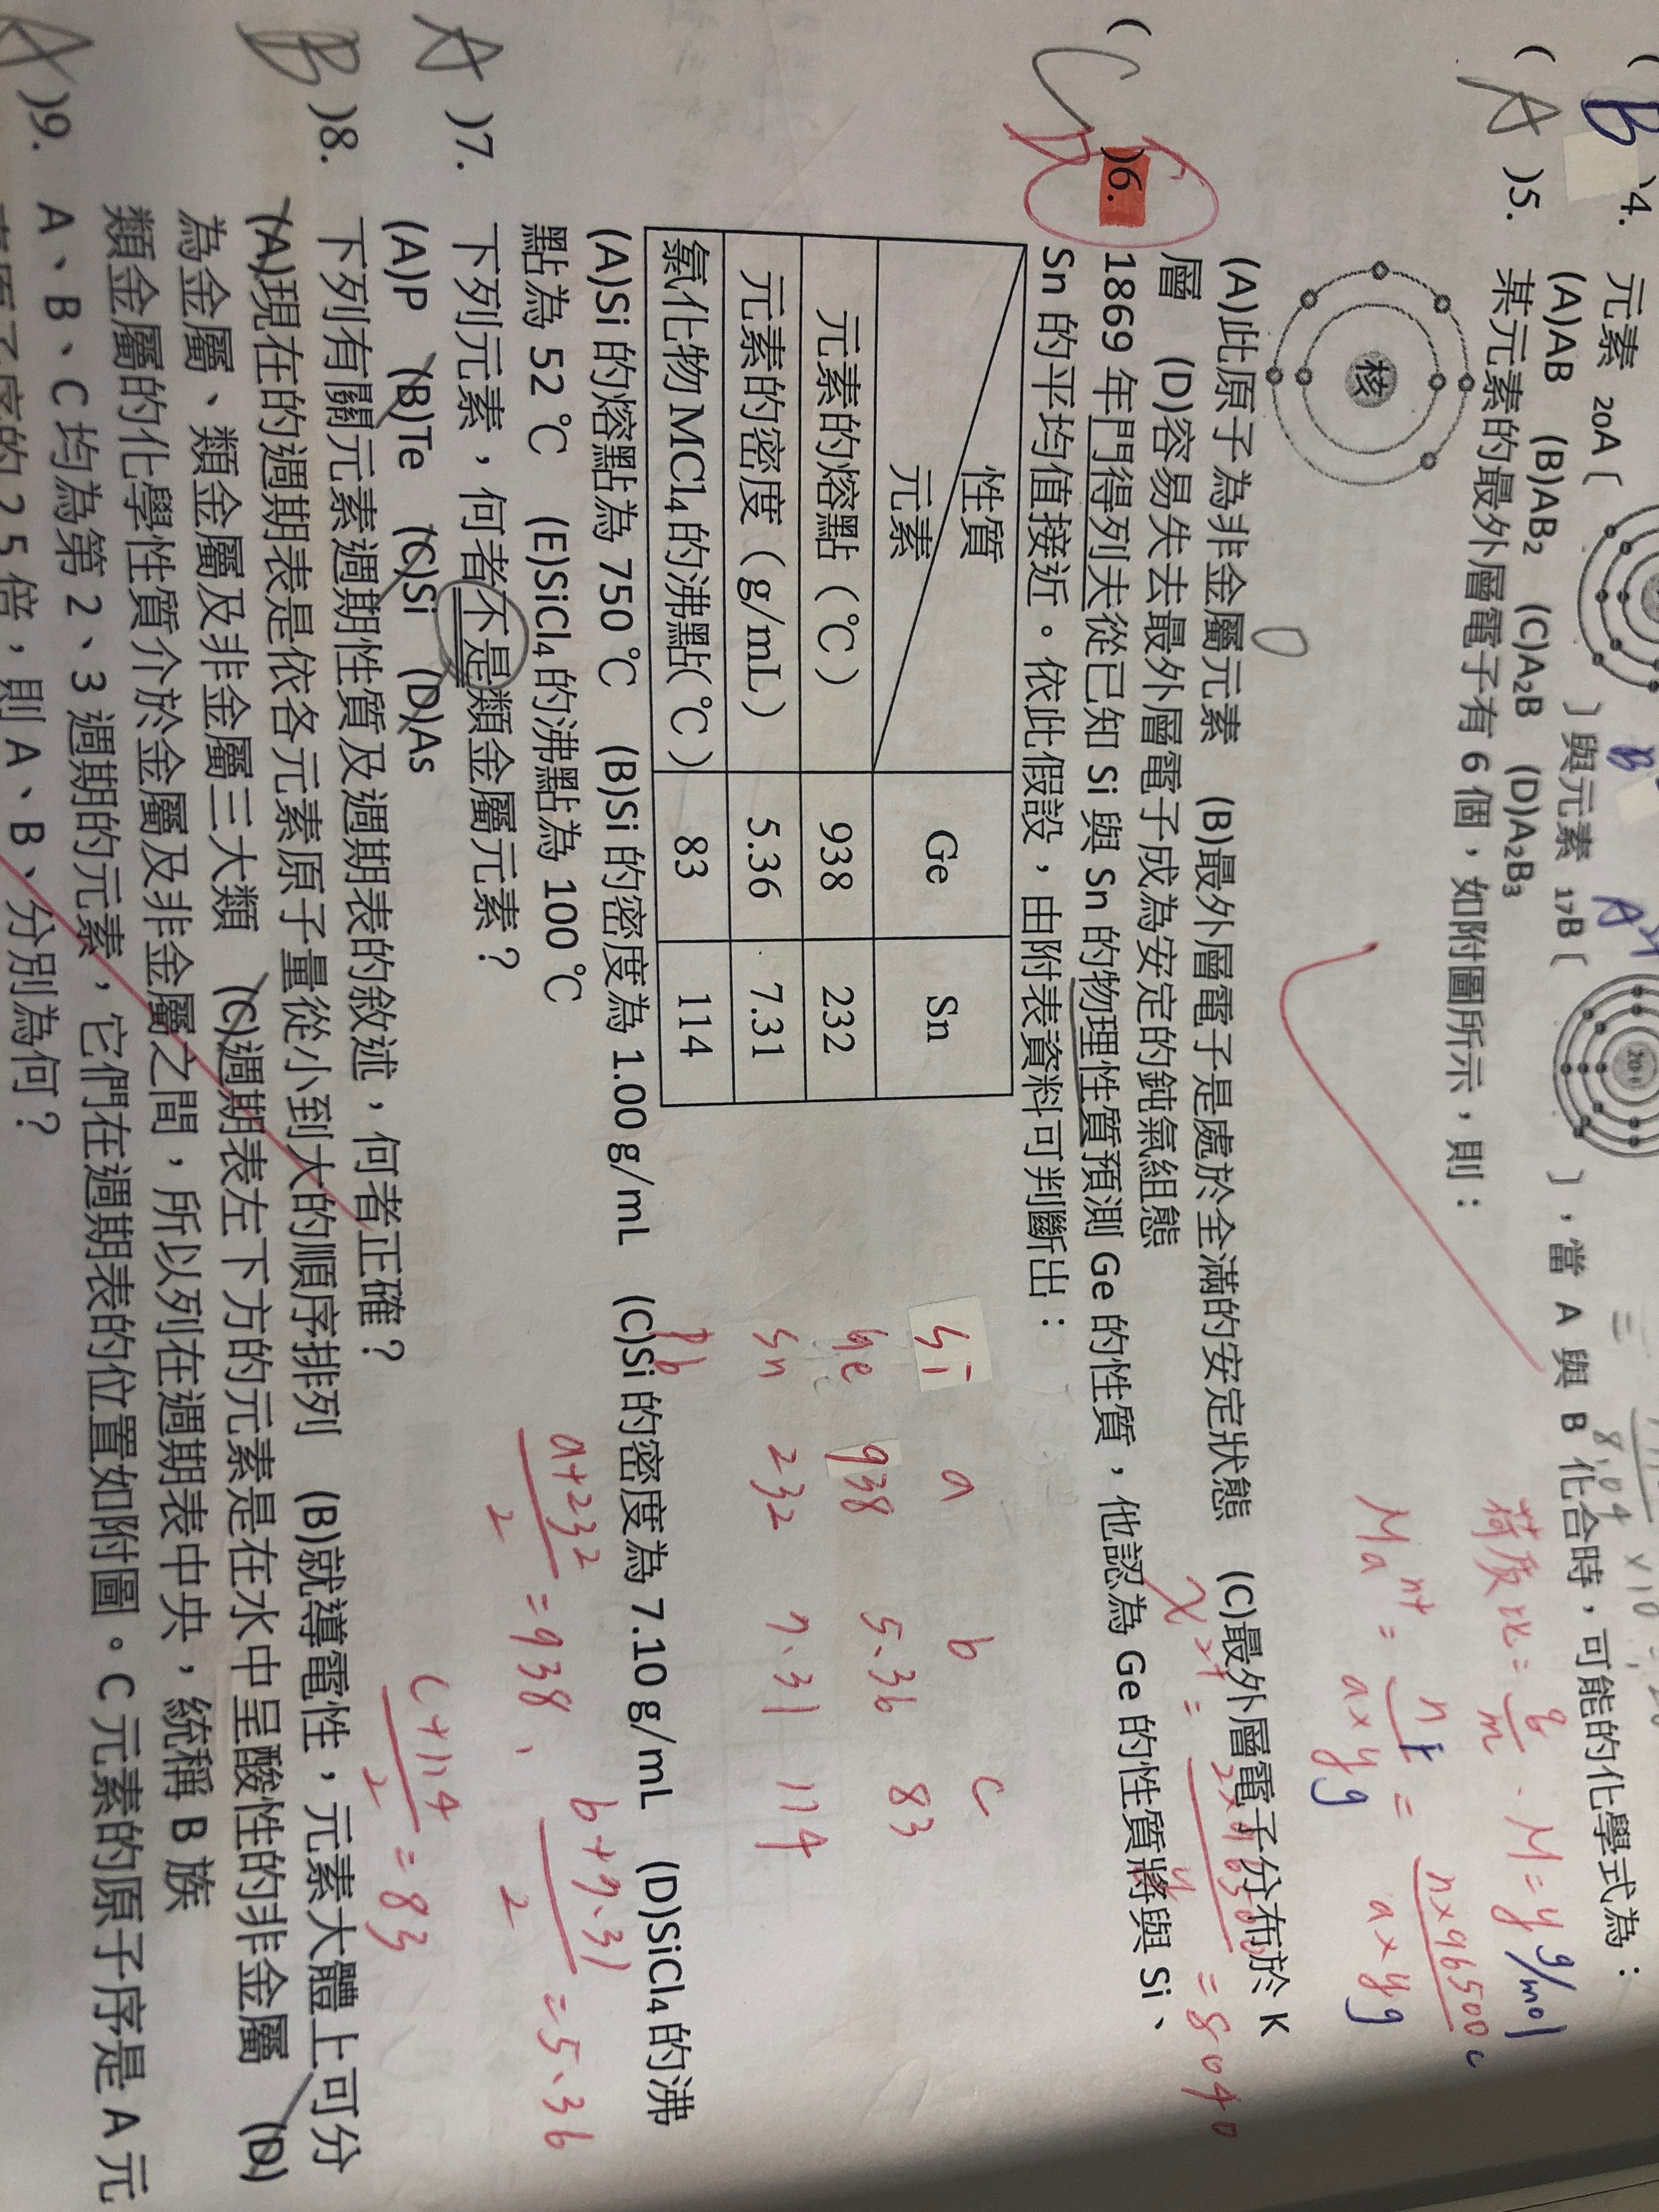 B )4. 元素 ₂₀A〔 〕與元素 ₁₇B〔 20+ 〕,當 A 與 B 化合時,可能的化學式為:
(A)AB (B)AB₂ (C)A₂B (D)A₂B₃
( A )5. 某元素的最外層電子有 6 個,如附圖所示,則:
核
(A)此原子為非金屬元素 (B)最外層電子是處於全滿的安定狀態 (C)最外層電子分布於 K
層 (D)容易失去最外層電子成為安定的鈍氣組態
( C )6. 1869 年門得列夫從已知 Si 與 Sn 的物理性質預測 Ge 的性質,他認為 Ge 的性質將與 Si、
Sn 的平均值接近。依此假設,由附表資料可判斷出:
性質
元素 Ge Sn
元素的熔點(℃) 938 232
元素的密度(g/mL) 5.36 7.31
氯化物 MCl₄ 的沸點(℃) 83 114
(A)Si 的熔點為 750 ℃ (B)Si 的密度為 1.00 g/mL (C)Si 的密度為 7.10 g/mL (D)SiCl₄ 的沸
點為 52 ℃ (E)SiCl₄ 的沸點為 100 ℃
A )7. 下列元素,何者不是類金屬元素?
(A)P (B)Te (C)Si (D)As
B )8. 下列有關元素週期性質及週期表的敘述,何者正確?
(A)現在的週期表是依各元素原子量從小到大的順序排列 (B)就導電性,元素大體上可分
為金屬、類金屬及非金屬三大類 (C)週期表左下方的元素是在水中呈酸性的非金屬 (D)
類金屬的化學性質介於金屬及非金屬之間,所以列在週期表中央,統稱 B 族
A )9. A、B、C 均為第 2、3 週期的元素,它們在週期表的位置如附圖。C 元素的原子序是 A 元
素原子序的 2.5 倍,則 A、B、分別為何?
荷质比 = q/m . M = y g/mol
Maⁿ⁺ = nF / a×yg = n×96500c / a×yg
= 8040
Si a b c
Ge 938 5.36 83
Sn 232 7.31 114
Pb
a+232 / 2 = 938 、 b+7.31 / 2 = 5.36
c+114 / 2 = 83